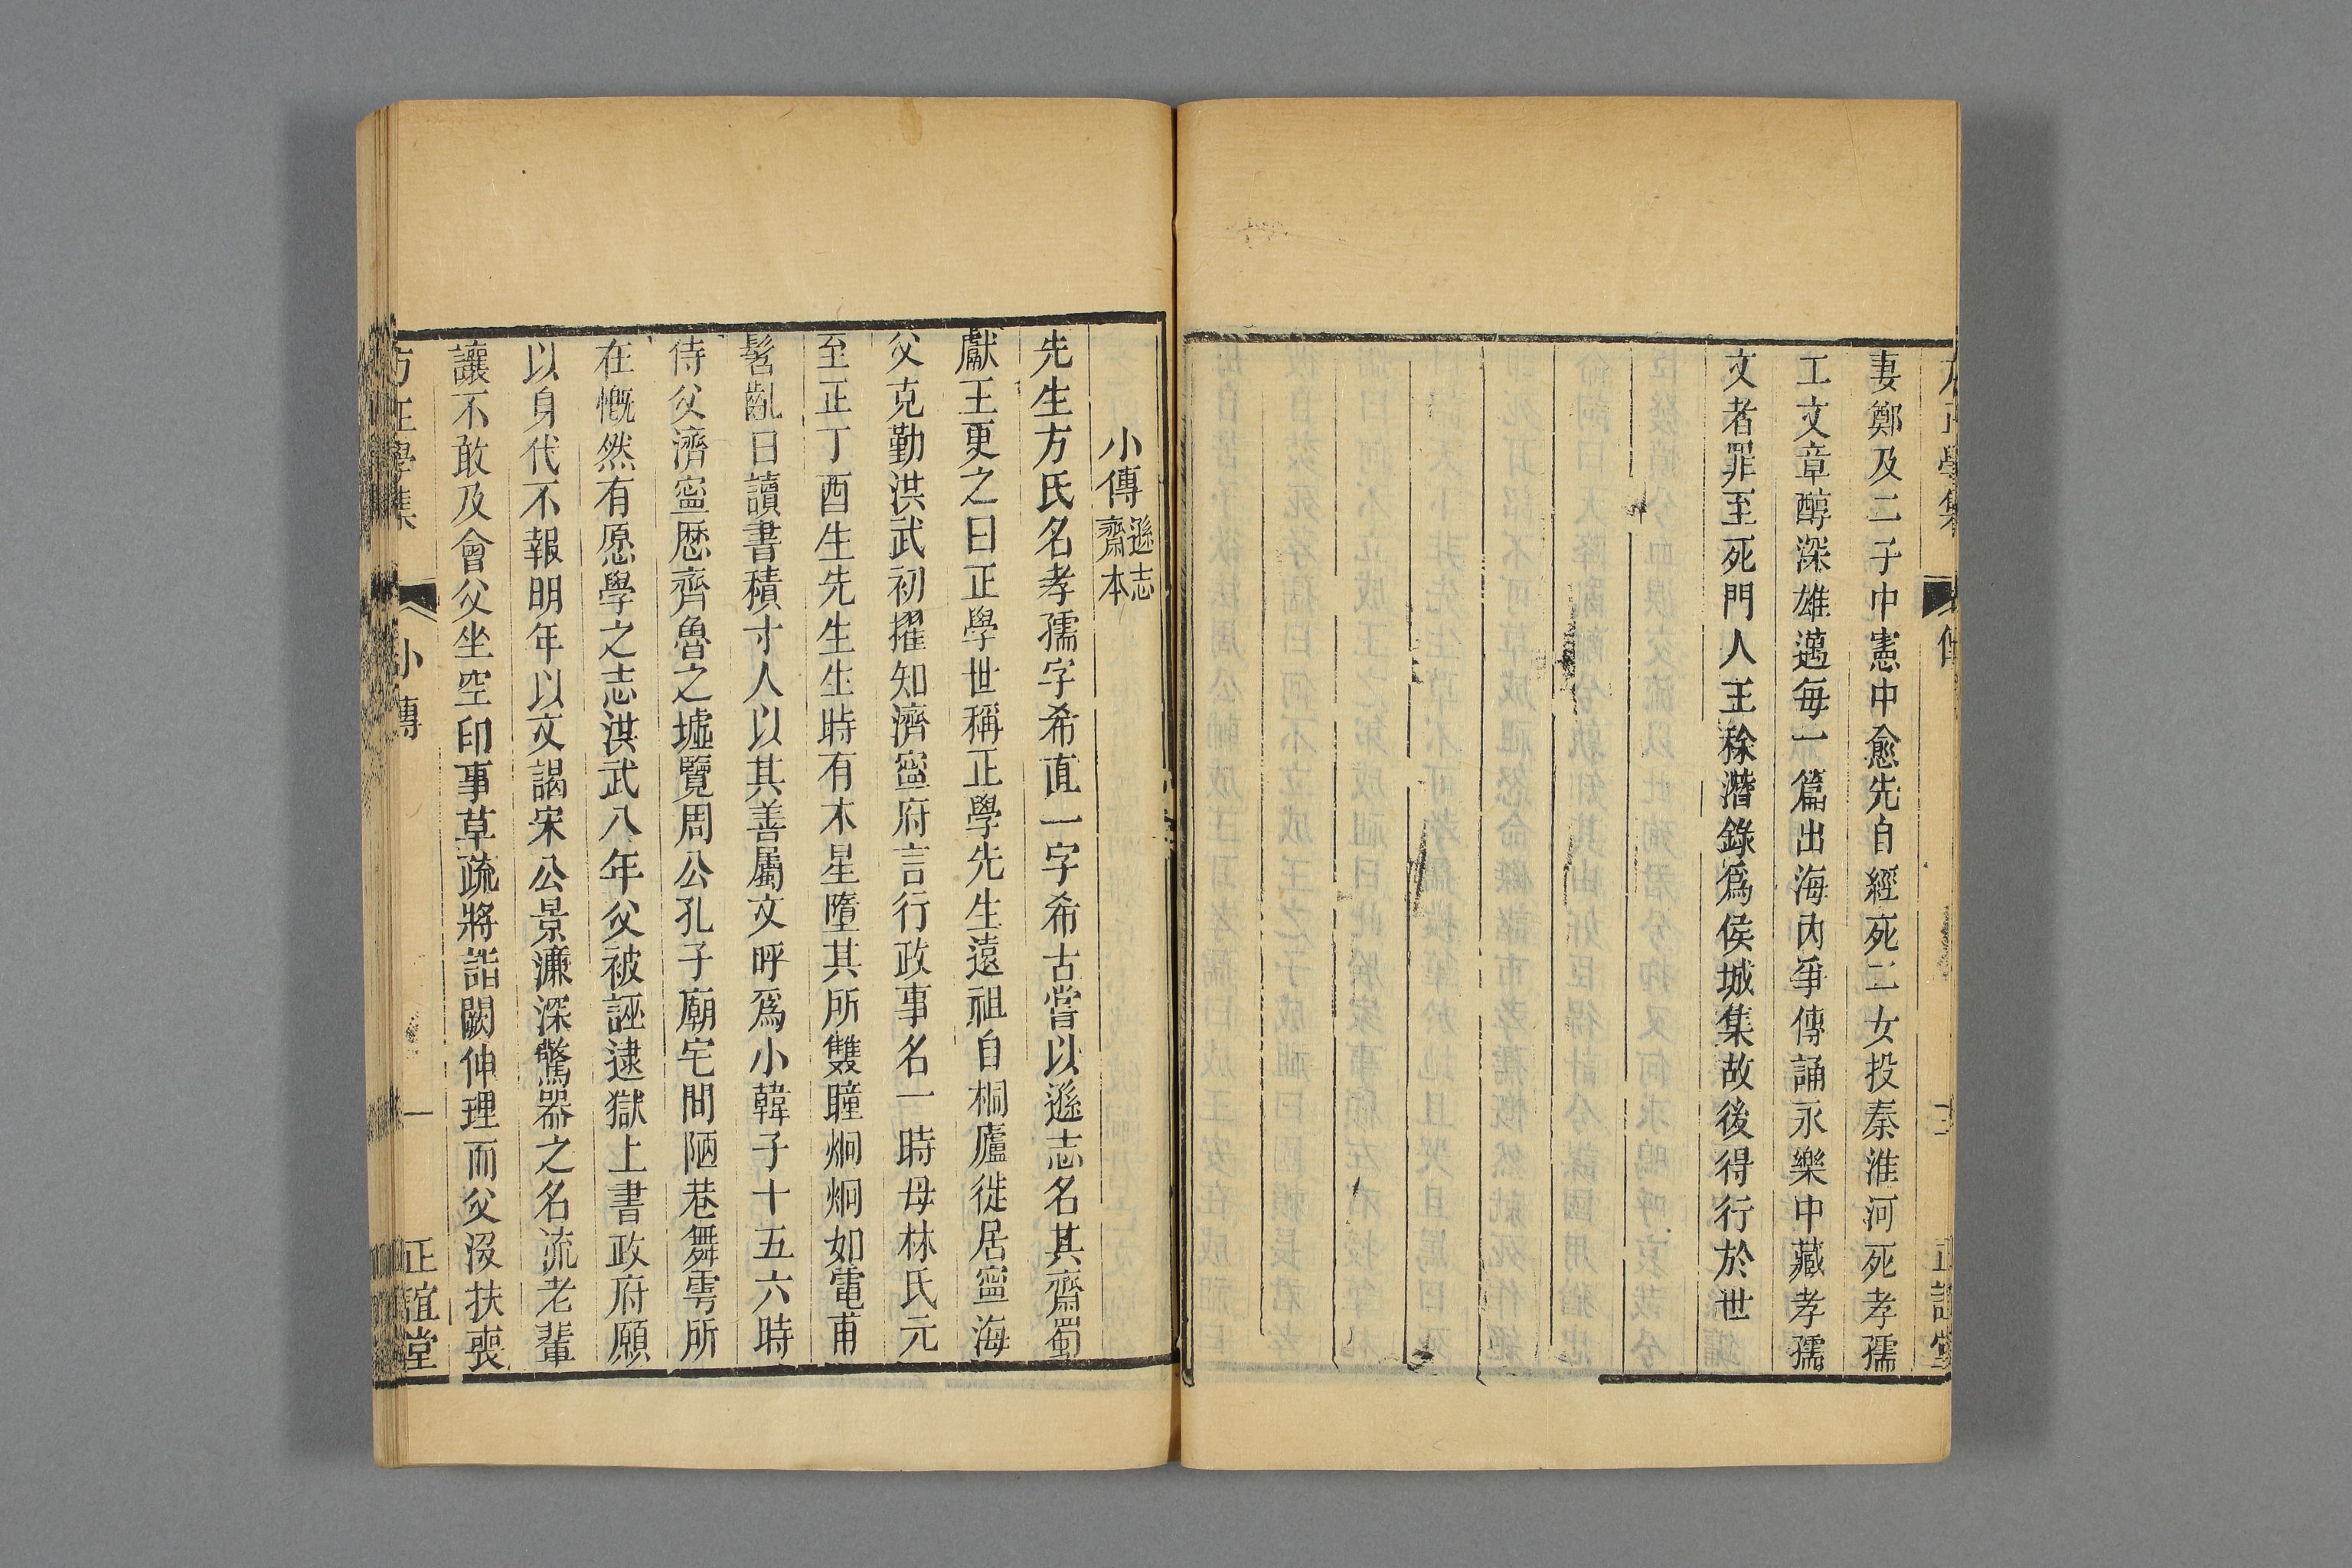 妻鄭及二子中憲中愈先自經死二女投秦淮河死孝孺
工文章醇深雄邁每一篇出海內爭傳誦永樂中藏孝孺
文者罪至死門人王稌潛錄爲侯城集故後得行於世
小傳 遜志齋本
先生方氏名孝孺字希直一字希古嘗以遜志名其齋蜀
獻王更之曰正學世稱正學先生遠祖自桐廬徙居寧海
父克勤洪武初擢知濟寧府言行政事名一時母林氏元
至正丁酉生先生生時有木星墮其所雙瞳炯炯如電甫
髫齓日讀書積寸人以其善屬文呼爲小韓子十五六時
侍父濟寧歷齊魯之墟覽周公孔子廟宅間陋巷舞雩所
在慨然有愿學之志洪武八年父被誣逮獄上書政府願
以身代不報明年以文謁宋公景濂深驚器之名流老輩
讓不敢及會父坐空印事草疏將詣闕伸理而父沒扶喪
方正學集 小傳 一 正誼堂